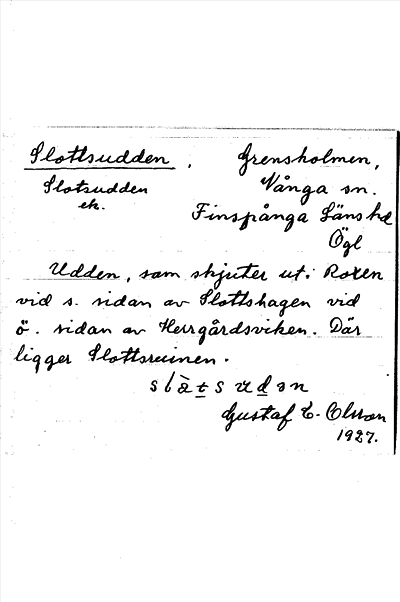 Slottsudden, Grensholmen,
Slotsudden Vånga sn.
ek. Finspånga Läns hd
Ögl
Udden, som skjuter ut i Roxen
vid s. sidan av Slottshagen vid
ö. sidan av Herrgårdsviken. Där
ligger Slottsruinen.
Gustaf E. Olsson
1927.